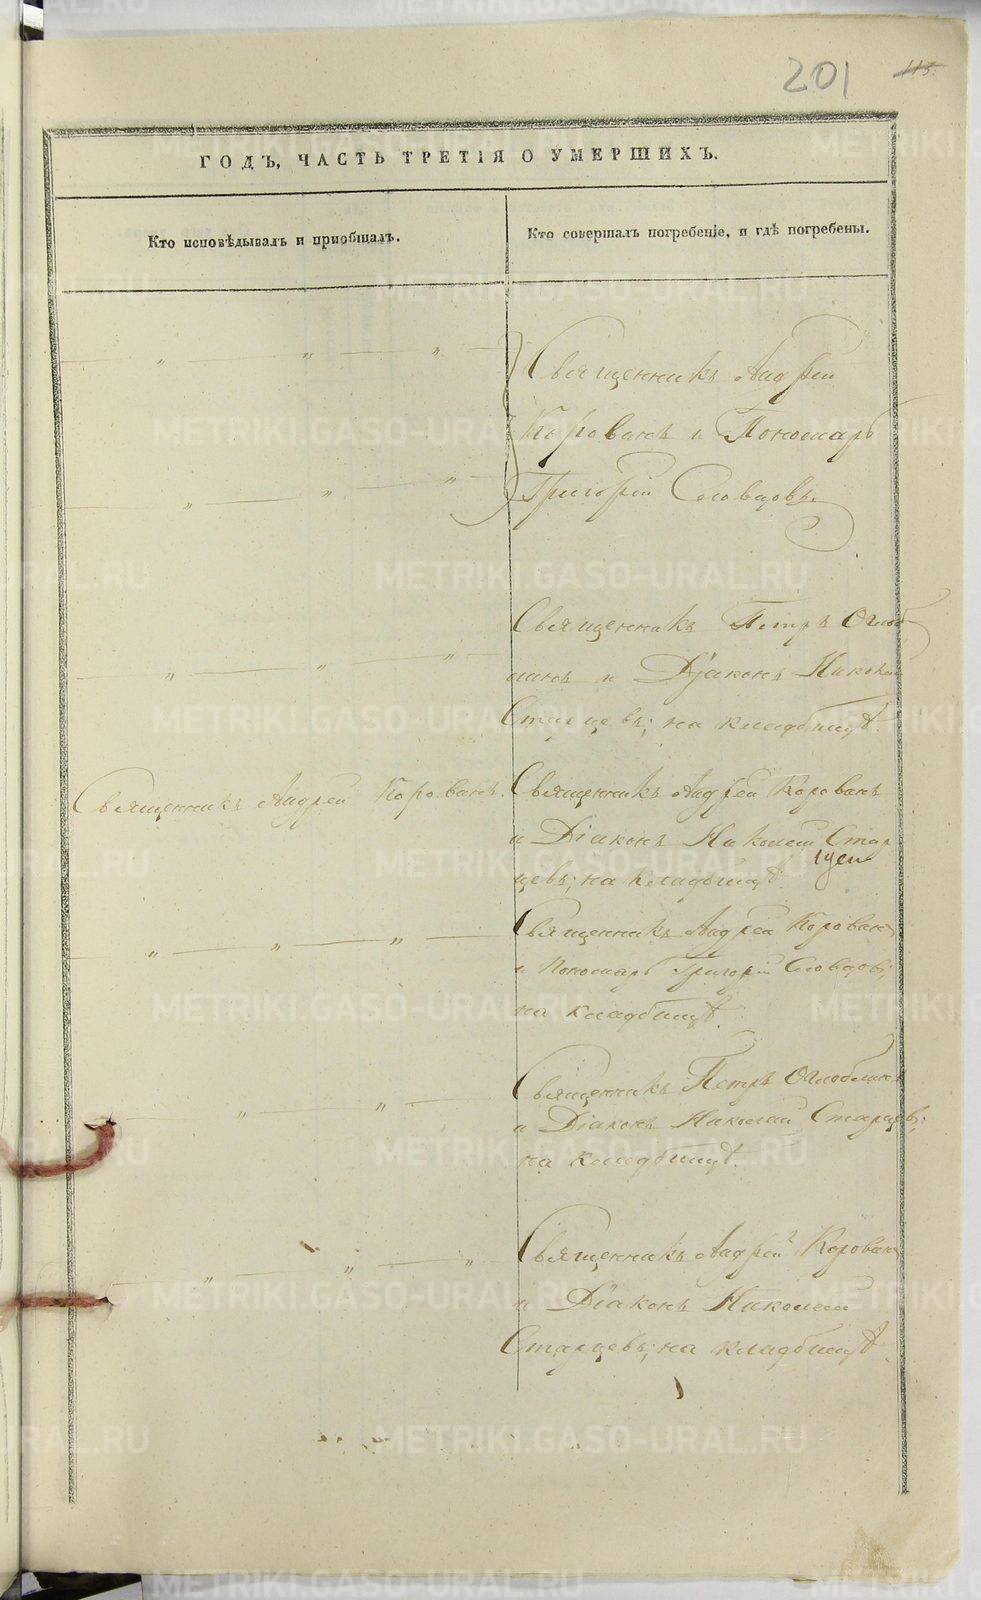 201 115
ГОДЪ, ЧАСТЬ ТРЕТІЯ О УМЕРШИХЪ.
Кто исповѣдывалъ и приобщалъ.
Кто совершалъ погребеніе, и гдѣ погребены.
Священникъ Андрей
Корованъ и Пономарь
Григорій Словцовъ.
Священникъ Петръ Оглоб-
линъ и Діаконъ Николай
Старцевъ; на кладбищѣ.
Священникъ Андрей Корованъ.
Священникъ Андрей Корованъ
и Діаконъ Николай Стар-
цевъ; на кладбищѣ.
Священникъ Андрей Корованъ
и Пономарь Григорій Словцовъ;
на кладбищѣ.
Священникъ Петръ Оглоблинъ
и Діаконъ Николай Старцевъ;
на кладбищѣ.
Священникъ Андрей Корованъ
и Діаконъ Николай
Старцевъ; на кладбищѣ.
METRIKI.GASO-URAL.RU